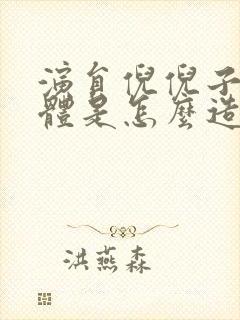 演員倪倪子
體是怎麼造
洪燕森